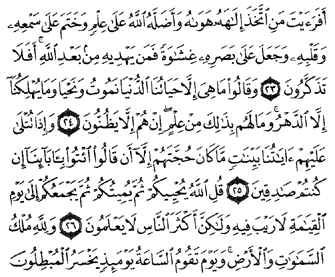 أَفَرَءَيْتَ مَنِ ٱتَّخَذَ إِلَٰهَهُۥ هَوَىٰهُ وَأَضَلَّهُ ٱللَّهُ عَلَىٰ عِلْمٍ وَخَتَمَ عَلَىٰ سَمْعِهِۦ
وَقَلْبِهِۦ وَجَعَلَ عَلَىٰ بَصَرِهِۦ غِشَٰوَةً فَمَن يَهْدِيهِ مِنۢ بَعْدِ ٱللَّهِ ۚ أَفَلَا
تَذَكَّرُونَ ٢٣ وَقَالُوا۟ مَا هِىَ إِلَّا حَيَاتُنَا ٱلدُّنْيَا نَمُوتُ وَنَحْيَا وَمَا يُهْلِكُنَآ
إِلَّا ٱلدَّهْرُ ۚ وَمَا لَهُم بِذَٰلِكَ مِنْ عِلْمٍ ۖ إِنْ هُمْ إِلَّا يَظُنُّونَ ٢٤ وَإِذَا تُتْلَىٰ
عَلَيْهِمْ ءَايَٰتُنَا بَيِّنَٰتٍ مَّا كَانَ حُجَّتَهُمْ إِلَّآ أَن قَالُوا۟ ٱئْتُوا۟ بِـَٔابَآئِنَآ إِن
كُنتُمْ صَٰدِقِينَ ٢٥ قُلِ ٱللَّهُ يُحْيِيكُمْ ثُمَّ يُمِيتُكُمْ ثُمَّ يَجْمَعُكُمْ إِلَىٰ يَوْمِ
ٱلْقِيَٰمَةِ لَا رَيْبَ فِيهِ وَلَٰكِنَّ أَكْثَرَ ٱلنَّاسِ لَا يَعْلَمُونَ ٢٦ وَلِلَّهِ مُلْكُ
ٱلسَّمَٰوَٰتِ وَٱلْأَرْضِ ۚ وَيَوْمَ تَقُومُ ٱلسَّاعَةُ يَوْمَئِذٍ يَخْسَرُ ٱلْمُبْطِلُونَ